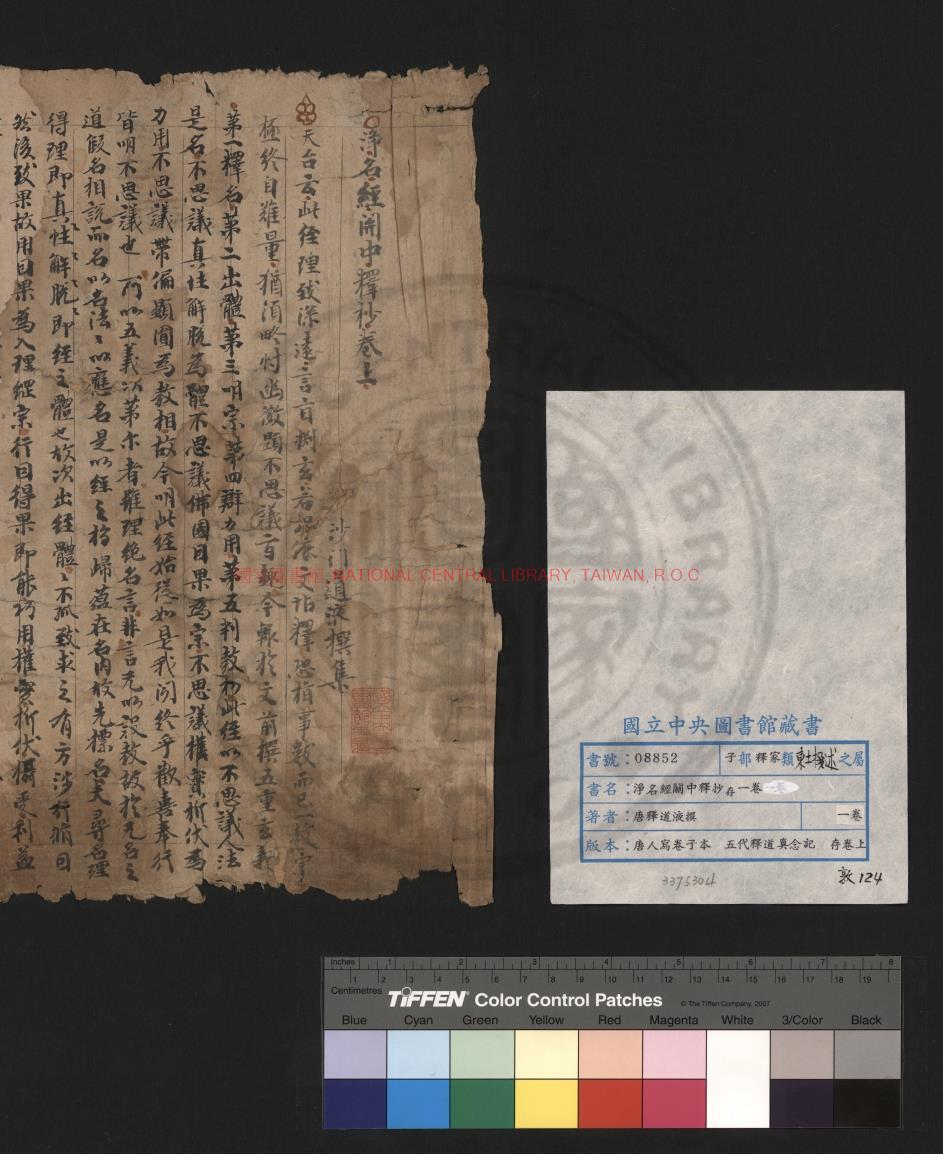 淨名經開中釋抄卷上
沙門道液撰集
天台云此經理致深遠言旨
極終自難量猶須略忖幽微顯不思議旨 今輒於文前撰五重玄義
第一釋名第二出體第三明宗第四辯力用第五判教相此經以不思議人法
是名不思議真性解脫為體不思議佛國因果為宗不思議權實折伏為
力用不思議帶偏顯圓為教相故今明此經始從如是我聞終乎歡喜奉行
皆明不思議也 所以五義次第尔者難理絕名言非言无以設教故於无名之
道假名相說而名以名法〻以應名是以經之指歸蘊在名內故先標名夫尋名理
得理即真性解脫即經之體也故次出經體〻不孤致求之有方涉行
然後致果故用因果為入理經宗行因得果即能 用權實折伏攝受利益
NATIONAL CENTRAL LIBRARY, TAIWAN, R.O.C.
國立中央圖書館藏書
書號：08852 子部釋家類 東土撰述 之屬
書名：淨名經關中釋抄存一卷
著者：唐釋道液撰 一卷
版本：唐人寫卷子本 五代釋道真念記 存卷上
3375304
敦124
inches 1 2 3 4 5 6 7 8
1 2 3 4 5 6 7 8 9 10 11 12 13 14 15 16 17 18 19
Centimetres
TIFFEN Color Control Patches © The Tiffen Company, 2007
Blue Cyan Green Yellow Red Magenta White 3/Color Black